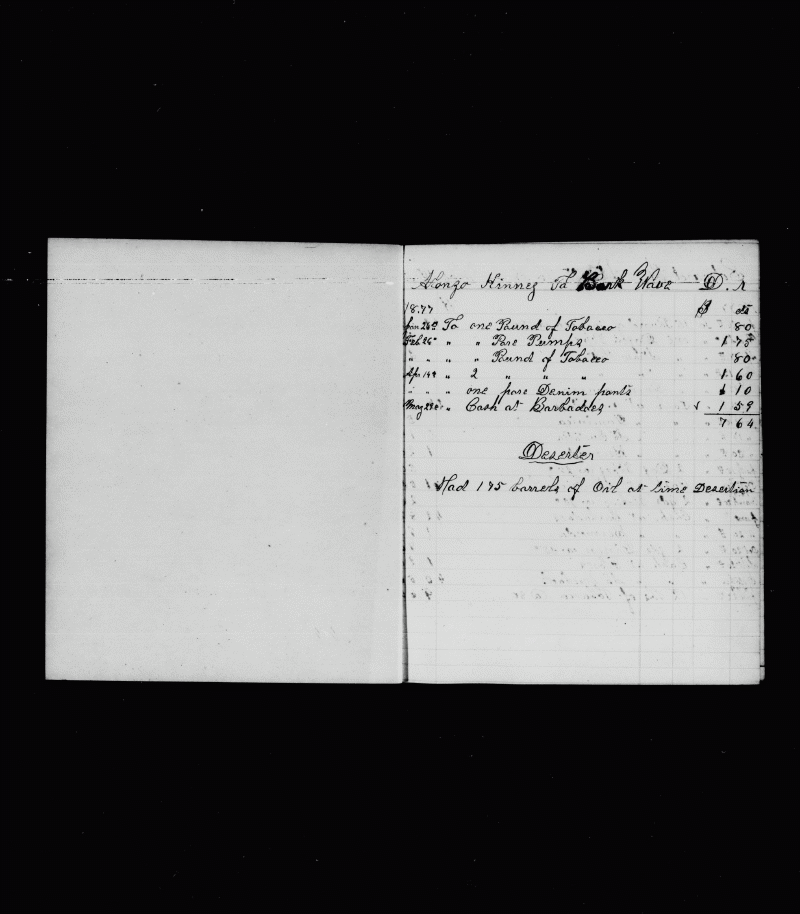 Alonzo Kinney To Bark Wave D.r
1877 $ cts
Jan 26th To one Pound of Tobacco 80
Feb 26th " " Pare Pumps 1 75
" " " " Pound of Tobacco 80
Apr 14th " 2 " " " 1 60
" " " one pare Denim pants 1 10
May " Cash at Barbadoes 1 59
7 64
Deserter
Had 175 barrels of Oil at time Desertian